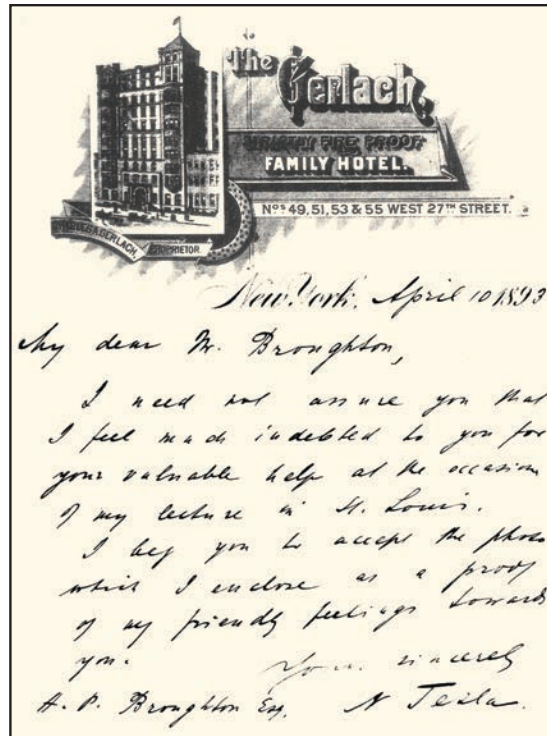 The Gerlach,
STRICTLY FIRE PROOF
FAMILY HOTEL.
Nos 49, 51, 53 & 55 WEST 27TH STREET.
GERLACH,
PROPRIETOR.
New York, April 10 1893
My dear Mr. Broughton,
I need not assure you that
I feel much indebted to you for
your valuable help at the occasion
of my lecture in St. Louis.
I beg you to accept the photo
which I enclose as a proof
of my friendly feelings towards
you.
Yours sincerely
A. P. Broughton Esq. N Tesla.